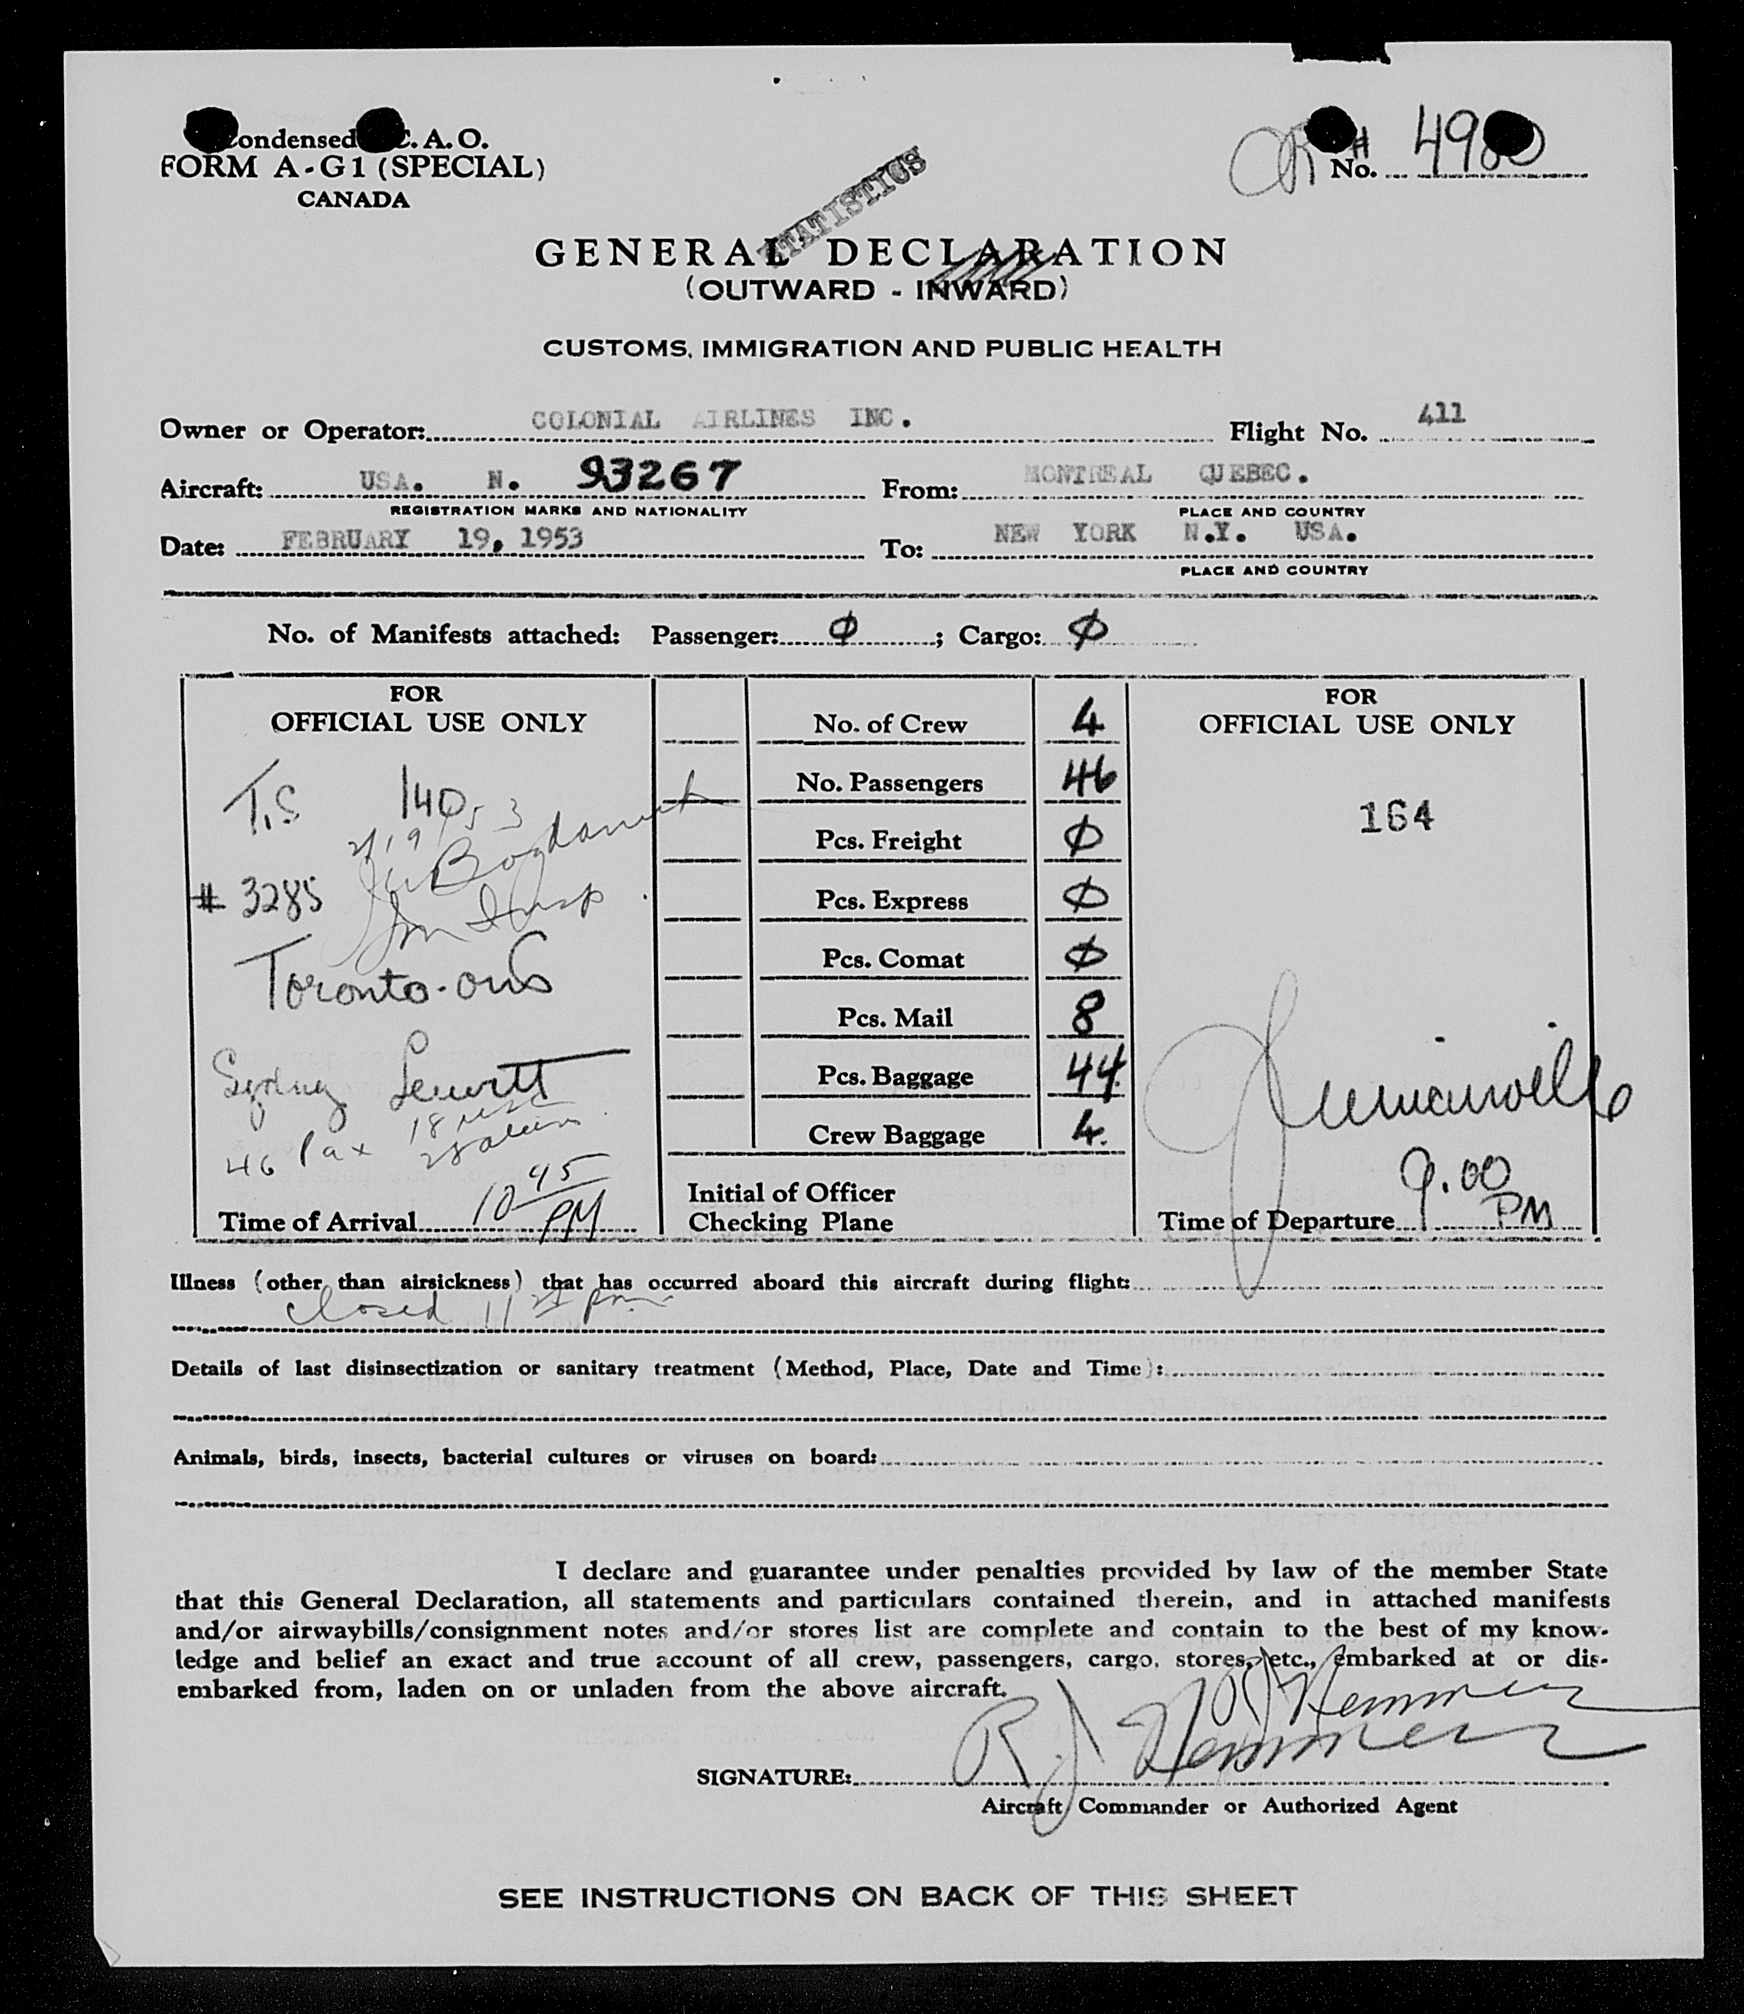 ondensed C. A. O.
FORM A-G1 (SPECIAL)
CANADA
No. # 4980
STATISTICS
GENERAL DECLARATION
(OUTWARD - INWARD)
CUSTOMS, IMMIGRATION AND PUBLIC HEALTH
Owner or Operator: COLONIAL AIRLINES INC. Flight No. 411
Aircraft: USA. N. 93267 From: MONTREAL QUEBEC.
REGISTRATION MARKS AND NATIONALITY PLACE AND COUNTRY
Date: FEBRUARY 19, 1953 To: NEW YORK N.Y. USA.
PLACE AND COUNTRY
No. of Manifests attached: Passenger: Ø ; Cargo: Ø
FOR
OFFICIAL USE ONLY
T.S 140
2/19/53
# 3285
Toronto-
Sydney
46 Pax 18
28 alien
10 45 PM
Time of Arrival
No. of Crew 4
No. Passengers 46
Pcs. Freight Ø
Pcs. Express Ø
Pcs. Comat Ø
Pcs. Mail 8
Pcs. Baggage 44.
Crew Baggage 4.
Initial of Officer
Checking Plane
FOR
OFFICIAL USE ONLY
164
9.00
Time of Departure PM
Illness (other than airsickness) that has occurred aboard this aircraft during flight:
closed 11 pm
Details of last disinsectization or sanitary treatment (Method, Place, Date and Time):
Animals, birds, insects, bacterial cultures or viruses on board:
I declare and guarantee under penalties provided by law of the member State
that this General Declaration, all statements and particulars contained therein, and in attached manifests
and/or airwaybills/consignment notes and/or stores list are complete and contain to the best of my know-
ledge and belief an exact and true account of all crew, passengers, cargo, stores, etc., embarked at or dis-
embarked from, laden on or unladen from the above aircraft.
SIGNATURE: R. J.
Aircraft Commander or Authorized Agent
SEE INSTRUCTIONS ON BACK OF THIS SHEET